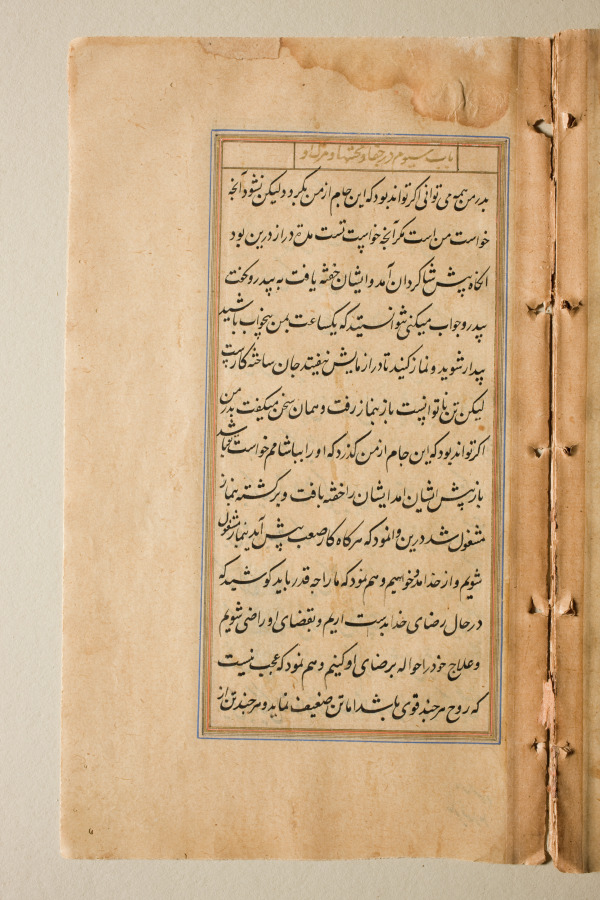 باب سیوم در جفا و محنتها و مرگ او
پدر من همه می توانی اگر تواند بود که این جام از من بگردد لیکن نشود آنچه
خواست من است مگر آنچه خواست تست مدتے دراز درین بود
انگاه پیش شاکردان آمد و ایشان خفته یافت به پیدرو گفت
پیدرو جواب میکنی نتوانستید که یکساعت بمن بیخواب باشید
بیدار شوید و نماز کنید تا در ازمایش نیفتید جان ساخته کارست
لیکن تن ناتوانست باز بنماز رفت و همان سخن میکفت پدر من
اکر تواند بود که این جام از من گذرد که او را بیاشامم خواست تو باشد
باز پیش ایشان امد ایشان را خفته یافت و برکشته بنماز
مشغول شد درین وانمود که هرکاه کار صعب پیش آمد بنماز مشغول
شویم و از خدا مدد خواهیم و هم نمود که ما را چه قدر باید کوشید که
در حال رضای خدا بدست اریم و بقضای او راضی شویم
و علاج خود را حواله برضای او کنیم و هم نمود که عجب نیست
که روح هرچند قوی باشد اما تن ضعیف نماید و هرچند تن از